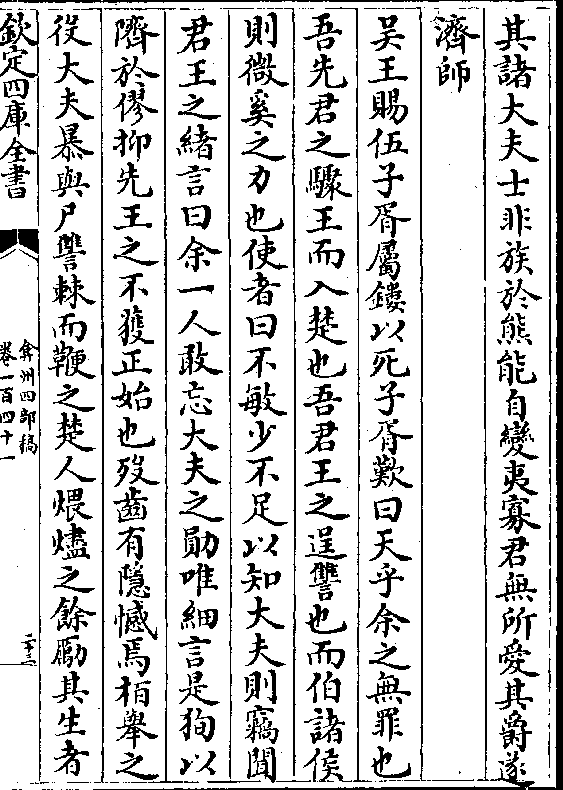 其諸大夫士非族於熊能自變夷寡君無所愛其爵遂
濟師
吳王賜伍子胥屬鏤以死子胥歎曰天乎余之無罪也
吾先君之驟王而入楚也吾君王之逞讐也而伯諸侯
則微奚之力也使者曰不敏少不足以知大夫則竊聞
君王之緒言曰余一人敢忘大夫之勛唯細言是狥以
隮於僇抑先王之不獲正始也歿齒有隱憾焉栢舉之
役大夫暴與尸讐棘而鞭之楚人煨燼之餘勵其生者
欽定四庫全書
弇州四部稿
卷一百四十一
二十三